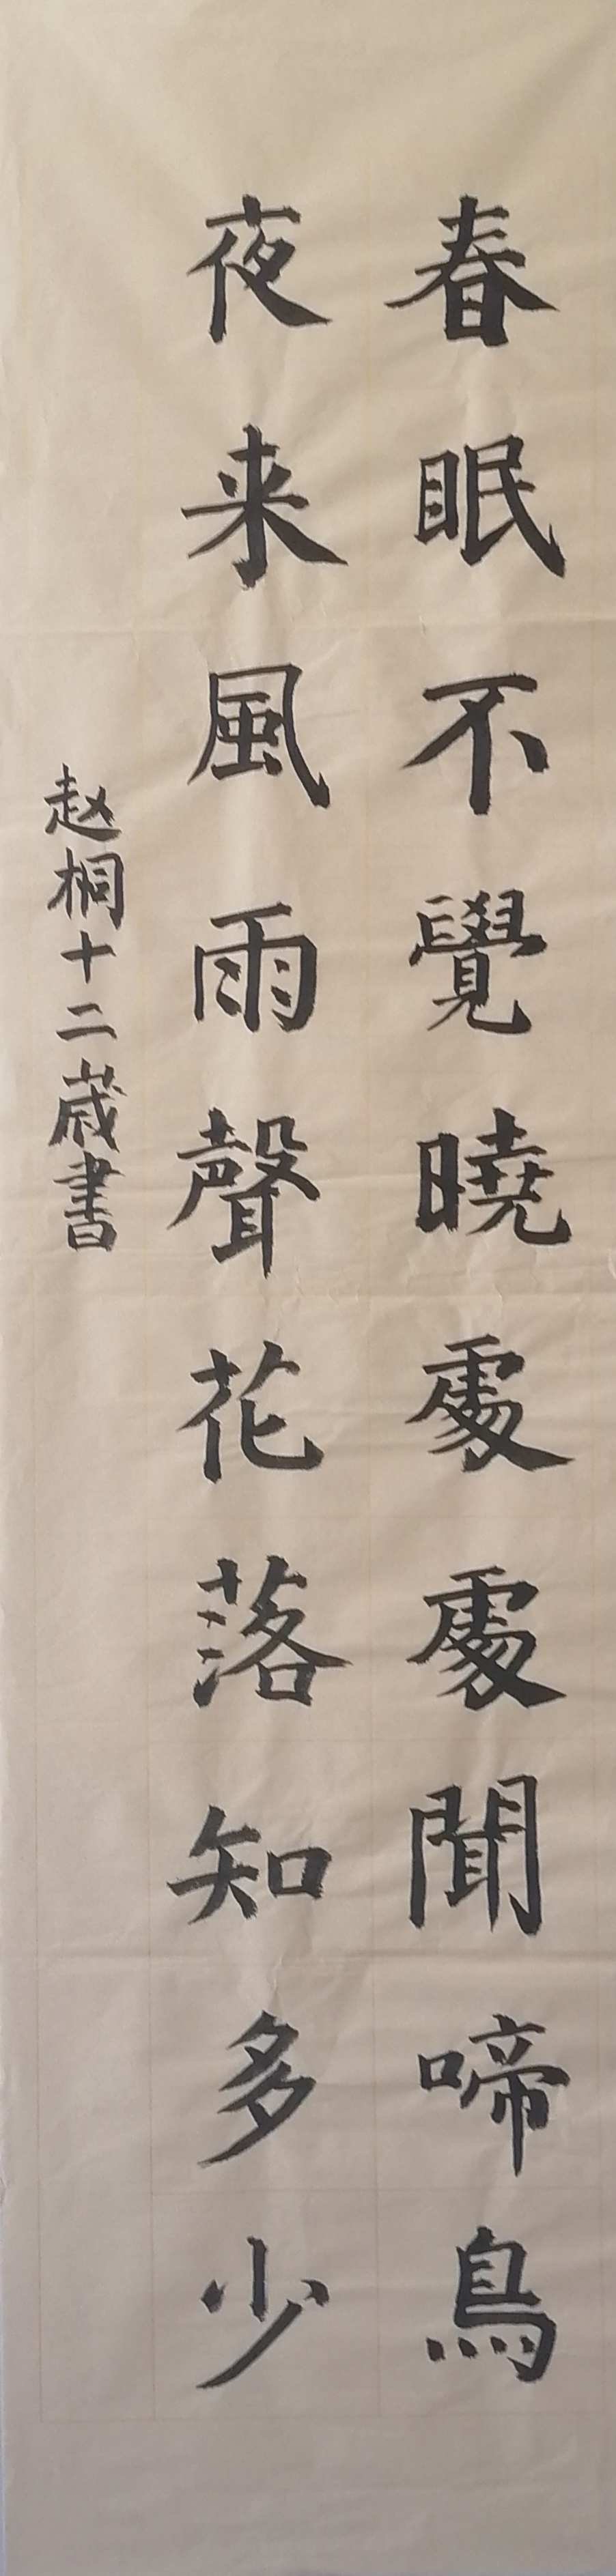 春眠不覺曉處處聞啼鳥
夜来風雨聲花落知多少
赵桐十二歲書